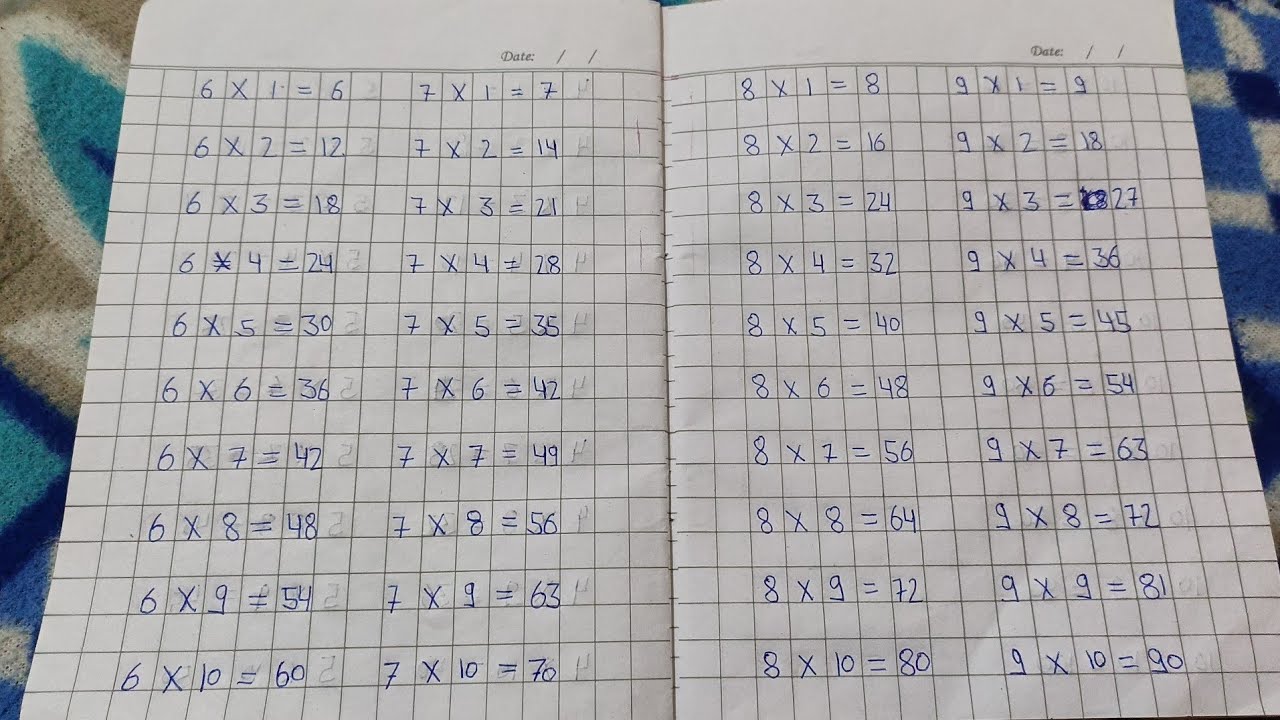 Date: / /
6 X 1 = 6 7 X 1 = 7
6 X 2 = 12 7 X 2 = 14
6 X 3 = 18 7 X 3 = 21
6 X 4 = 24 7 X 4 = 28
6 X 5 = 30 7 X 5 = 35
6 X 6 = 36 7 X 6 = 42
6 X 7 = 42 7 X 7 = 49
6 X 8 = 48 7 X 8 = 56
6 X 9 = 54 7 X 9 = 63
6 X 10 = 60 7 X 10 = 70
Date: / /
8 X 1 = 8 9 X 1 = 9
8 X 2 = 16 9 X 2 = 18
8 X 3 = 24 9 X 3 = 27
8 X 4 = 32 9 X 4 = 36
8 X 5 = 40 9 X 5 = 45
8 X 6 = 48 9 X 6 = 54
8 X 7 = 56 9 X 7 = 63
8 X 8 = 64 9 X 8 = 72
8 X 9 = 72 9 X 9 = 81
8 X 10 = 80 9 X 10 = 90